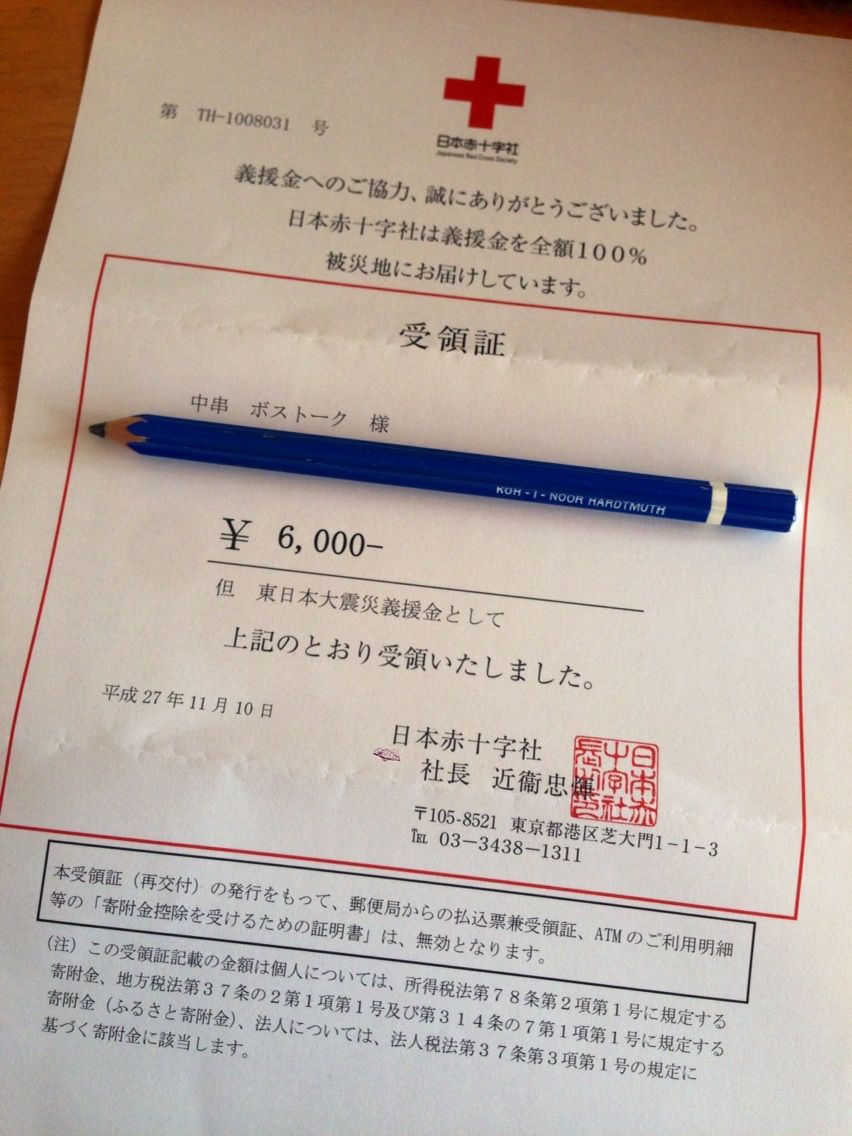 第 TH-1008031 号
日本赤十字社
Japanese Red Cross Society
義援金へのご協力、誠にありがとうございました。
日本赤十字社は義援金を全額１００％
被災地にお届けしています。
受領証
中串 ボストーク 様
KOH-I-NOOR HARDTMUTH
￥ 6,000−
但 東日本大震災義援金として
上記のとおり受領いたしました。
平成 27 年 11 月 10 日
日本赤十字社
社長 近衞忠煇
日本赤十字社長之印
〒105-8521 東京都港区芝大門１−１−３
℡ 03−3438−1311
本受領証（再交付）の発行をもって、郵便局からの払込票兼受領証、ATM のご利用明細
等の「寄附金控除を受けるための証明書」は、無効となります。
（注）この受領証記載の金額は個人については、所得税法第７８条第２項第１号に規定する
寄附金、地方税法第３７条の２第１項第１号及び第３１４条の７第１項第１号に規定する
寄附金（ふるさと寄附金）、法人については、法人税法第３７条第３項第１号の規定に
基づく寄附金に該当します。